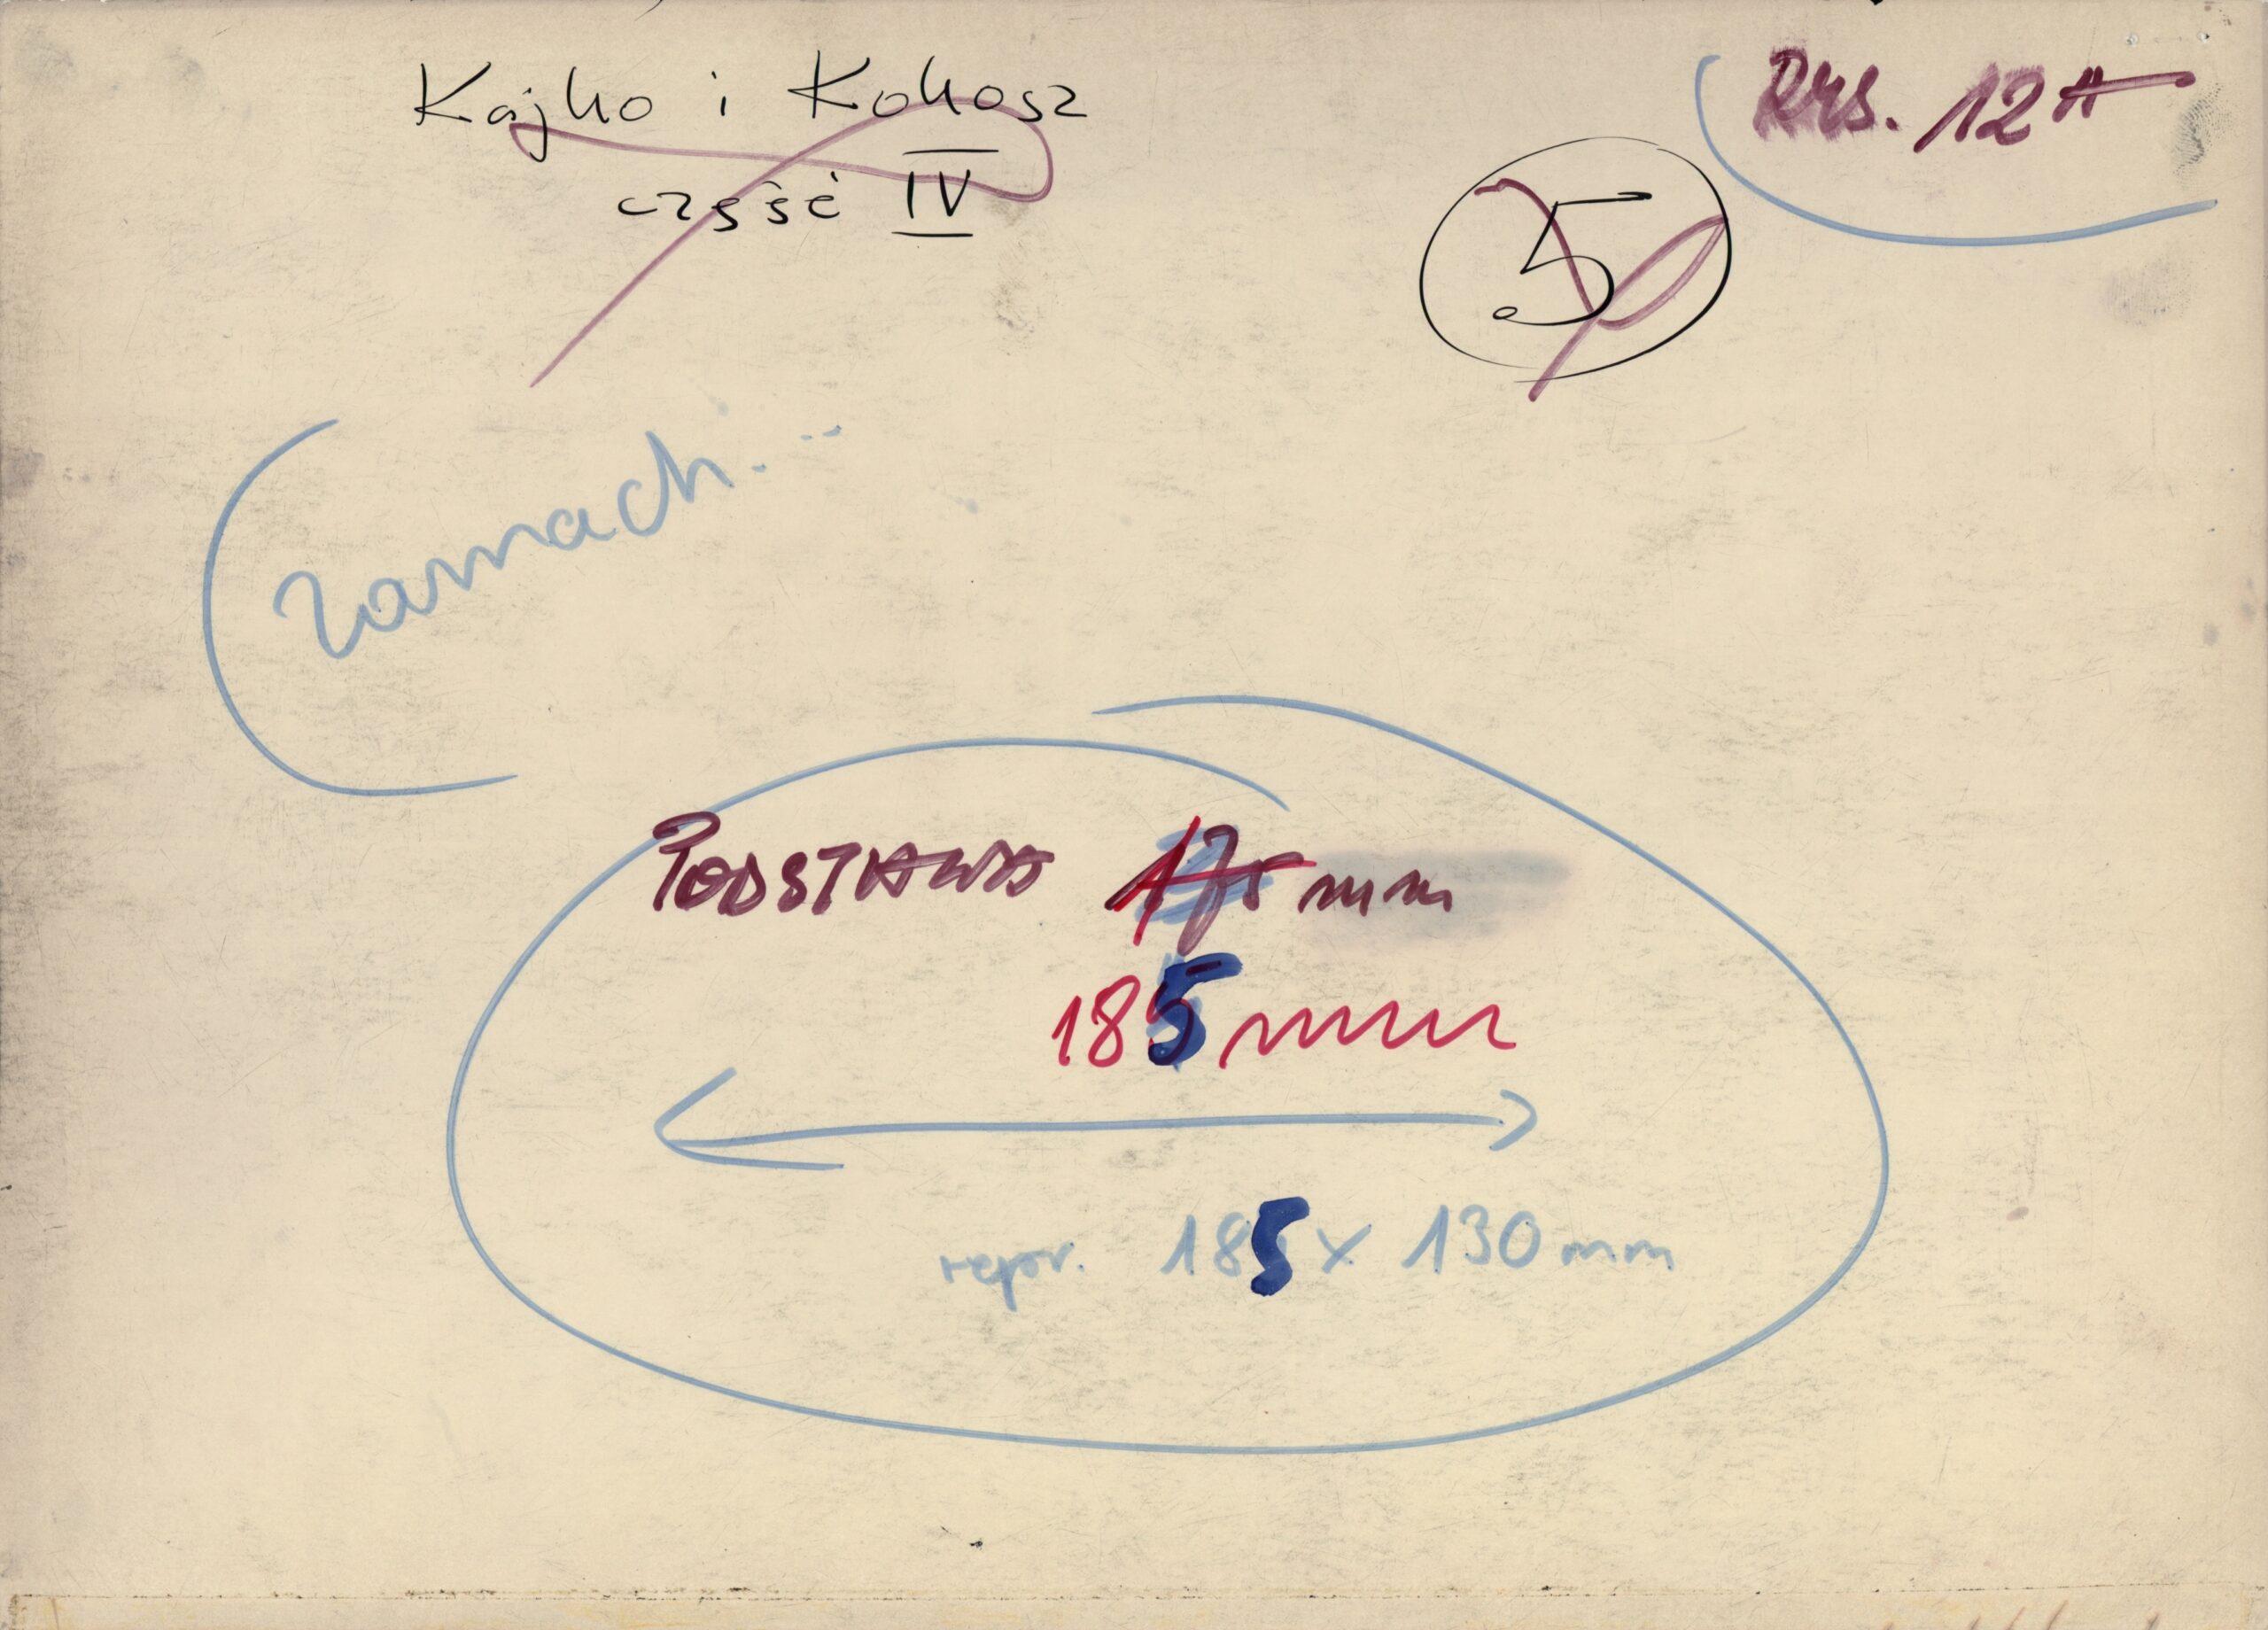 Kajko i Kokosz
część IV
Rys. 12A
5
zamach...
PODSTAWA 175 mm
185 mm
repr. 185 x 130 mm